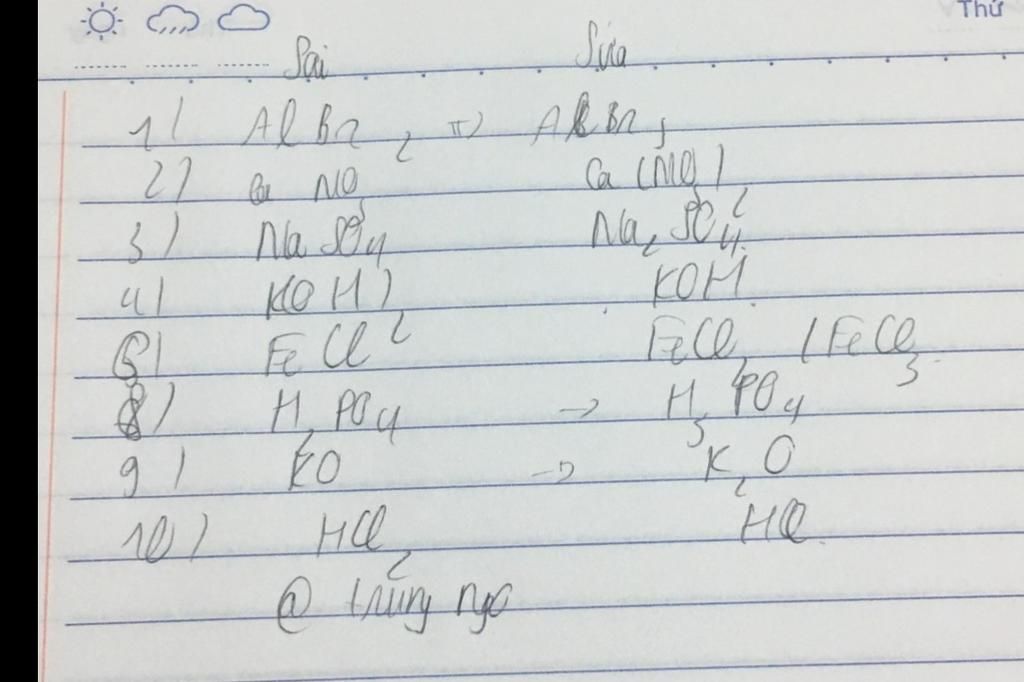 Thứ
Sai Sửa
1) AlBr2 => AlBr3
2) Ca NO3 Ca(NO3)2
3) NaSO4 Na2SO4
4) K(OH)2 KOH
6) FeCl FeCl2 / FeCl3
8) H2PO4 -> H3PO4
9) KO -> K2O
10) HCl2 HCl
@ trùng ngo